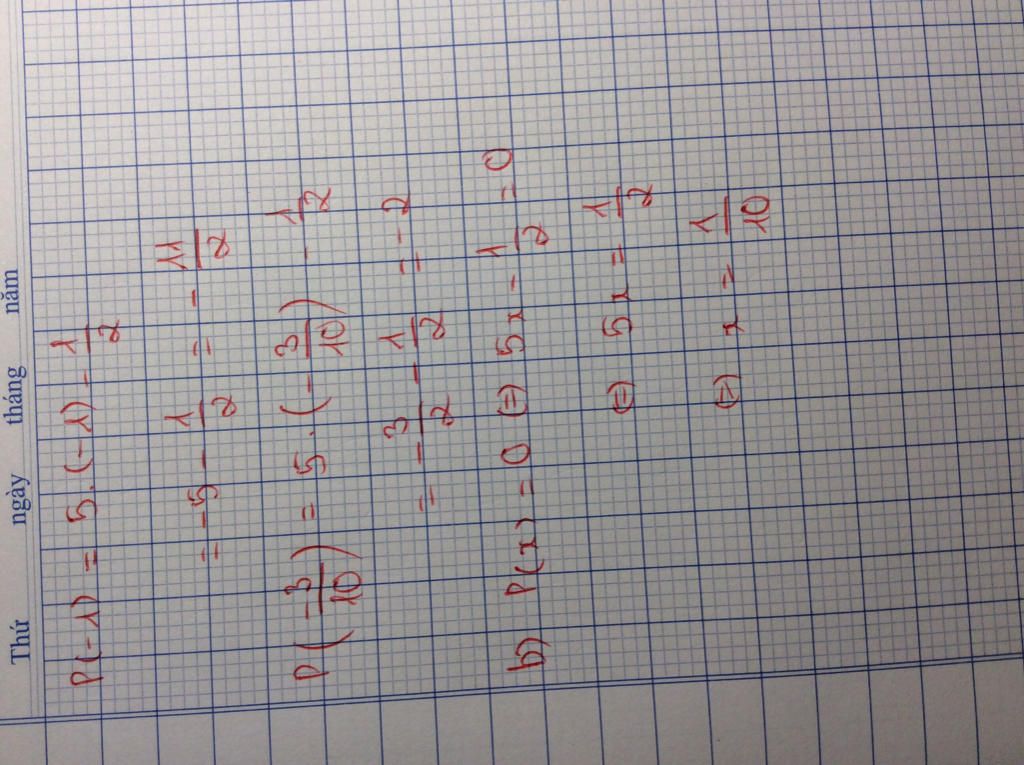 Thứ ngày tháng năm
P(-1) = 5.(-1) - 1/2
= -5 - 1/2 = - 11/2
P(-3/10) = 5.(-3/10) - 1/2
= -3/2 - 1/2 = -2
b) P(x) = 0 (=) 5x - 1/2 = 0
(=) 5x = 1/2
(=) x = 1/10